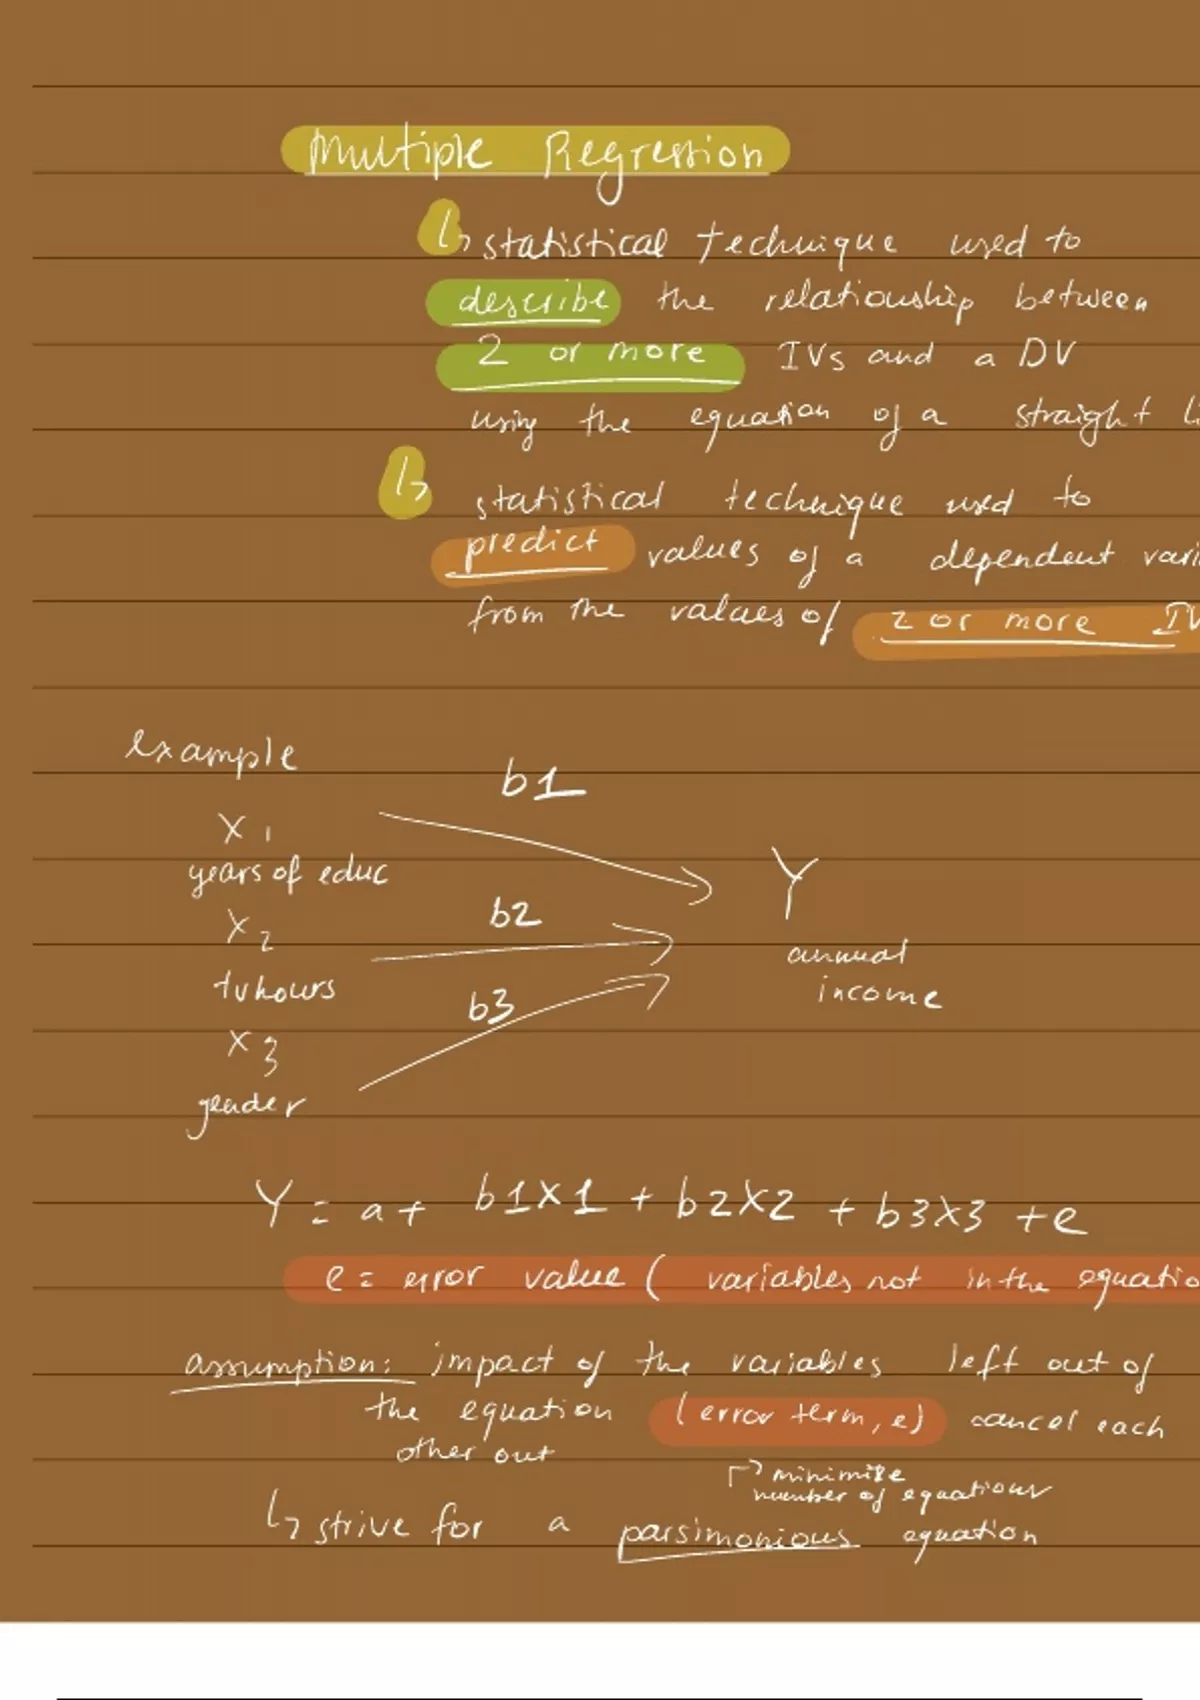 Multiple Regression
↳ statistical technique used to
describe the relationship between
2 or more IVs and a DV
using the equation of a straight li
↳ statistical technique used to
predict values of a dependent vari
from the values of 2 or more IV
example
b1
X1
years of educ
Y
b2
X2
annual
tv hours
income
b3
X3
gender
Y = a + b1X1 + b2X2 + b3X3 + e
e = error value ( variables not in the equatio
assumption: impact of the variables left out of
the equation (error term, e) cancel each
other out
↱ minimize
number of equations
↳ strive for a parsimonious equation